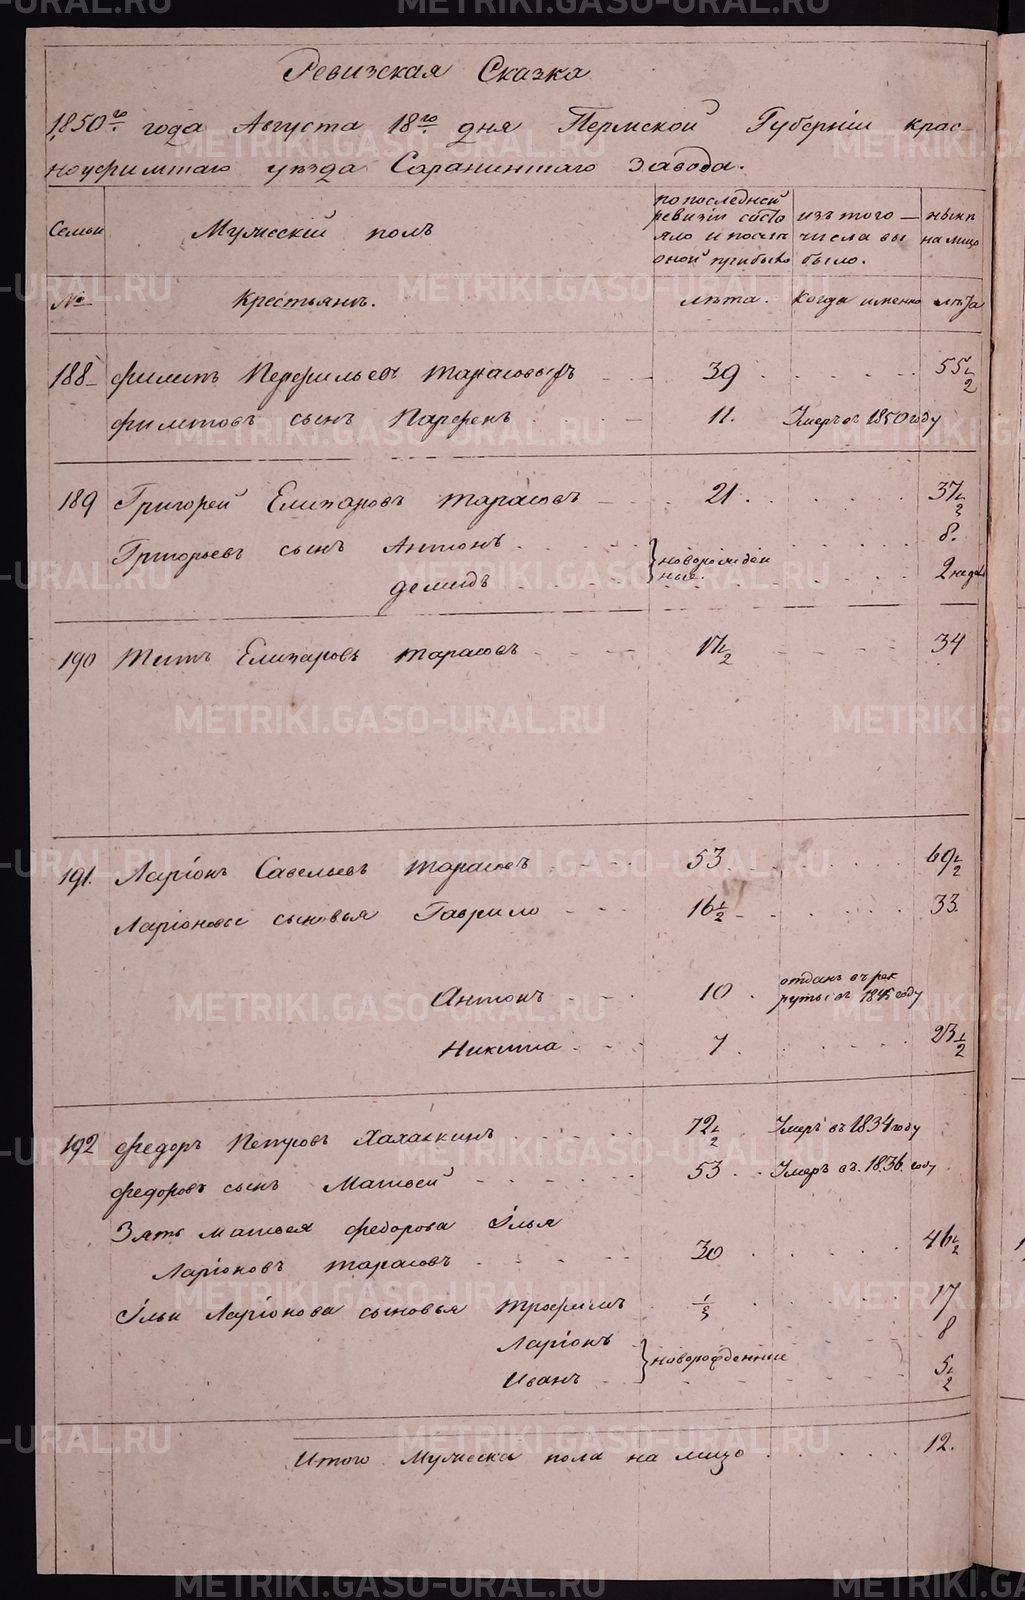 Ревизская Сказка
1850го года Августа 18го дня Пермской Губерніи крас-
ноуфимскаго уезда Саранинскаго завода.
Семьи
Мужескій полъ
по последней ревизіи состо яло и после оной прибыло
изъ того числа вы было.
ныне на лицо
№
Крестьянъ.
лета.
Когда именно
лета
188 филипъ Перфильевъ Тарасовыхъ 39 55 1/2
филиповъ сынъ Парфенъ 11. Умеръ въ 1850 году
189 Григорей Елизаровъ Тарасовъ 21. 37 1/3
Григорьевъ сынъ Антонъ 8.
демидъ } новорожден ные. 2 недел
190 Титъ Елизаровъ Тарасовъ 17 1/2 34
191. Ларіонъ Савельевъ Тарасовъ 53. 69 1/2
Ларіоновы сыновья Гаврило 16 1/2 33.
Антонъ 10 отданъ в рек руты въ 1845 году
Никита 7. 23 1/2
192 федоръ Петровъ Халаткинъ 72 1/2 Умеръ въ 1834 году
федоровъ сынъ Матвей 53 Умеръ въ 1836 году
Зять матвея федорова Илья
Ларіоновъ Тарасовъ 30 46 1/2
Ильи Ларіонова сыновья Трофимъ 1/3 17
Ларіонъ 8
Иванъ } новорожденные 5 1/2
Итого Мужеска пола на лицо 12.
METRIKI.GASO-URAL.RU